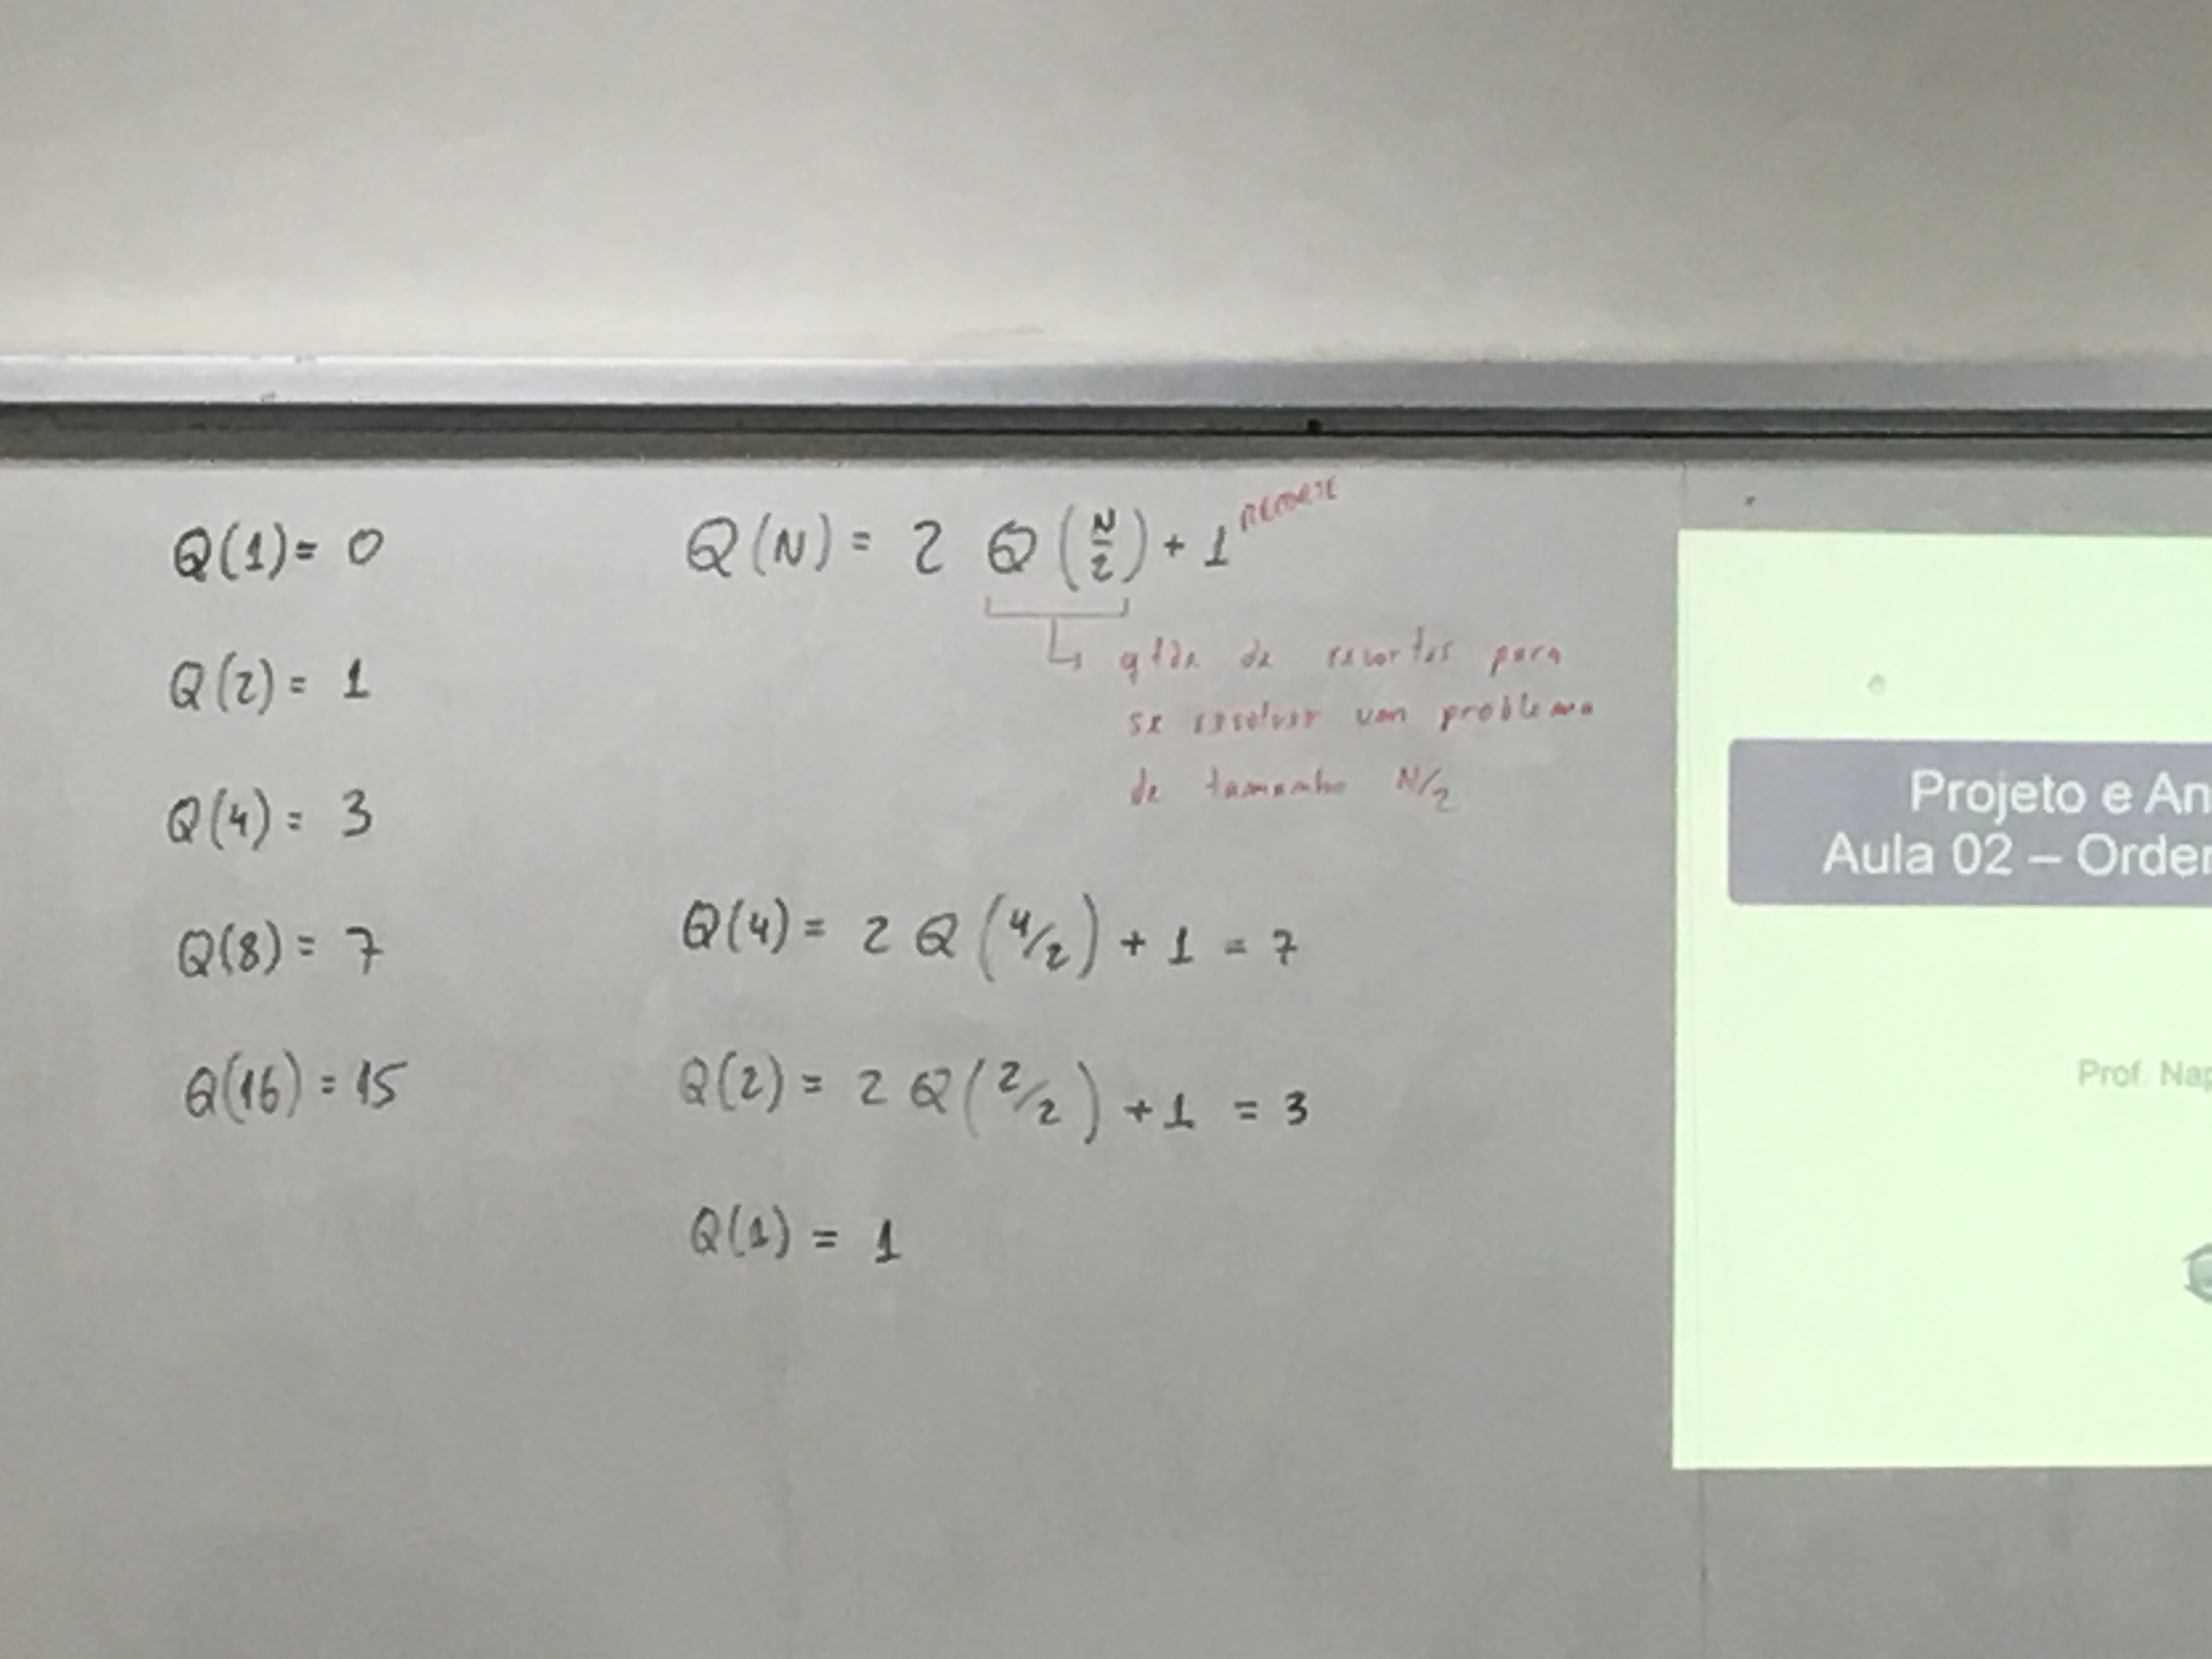 Q(1)= 0
Q(2)= 1
Q(4)= 3
Q(8)= 7
Q(16)=15
Q(N)= 2 Q(N/2)+1 RECORTE
qtde de recortes para
se resolver um problema
de tamanho N/2
Q(4)= 2 Q(4/2)+1 = 7
Q(2)= 2 Q(2/2)+1 = 3
Q(1) = 1
Projeto e An
Aula 02 – Order
Prof. Nap